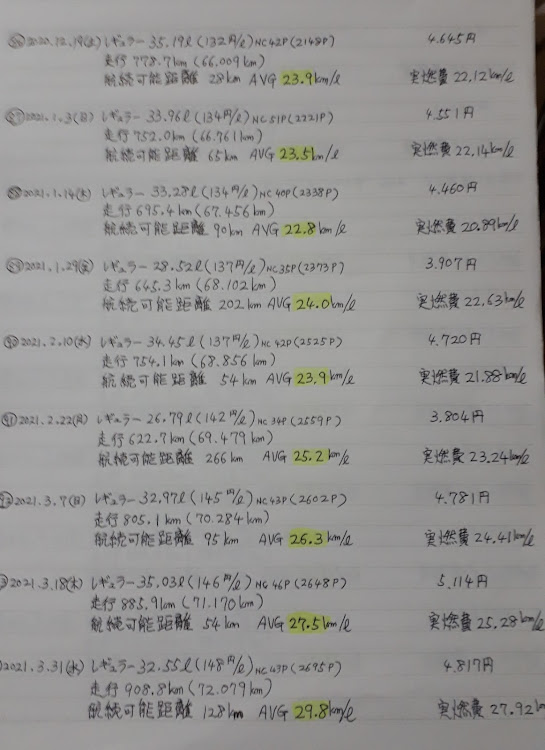 2020.12.19(土) レギュラー 35.19ℓ(132円/ℓ)NC42P(2148P) 4.645円
走行 778.7km(66.009km)
航続可能距離 28km AVG 23.9km/ℓ 実燃費 22.12km/ℓ
2021.1.3(日) レギュラー 33.96ℓ(134円/ℓ)NC51P(2221P) 4.551円
走行 752.0km(66.761km)
航続可能距離 65km AVG 23.5km/ℓ 実燃費 22.14km/ℓ
2021.1.14(木) レギュラー 33.28ℓ(134円/ℓ)NC40P(2338P) 4.460円
走行 695.4km(67.456km)
航続可能距離 90km AVG 22.8km/ℓ 実燃費 20.89km/ℓ
2021.1.29(金) レギュラー 28.52ℓ(137円/ℓ)NC35P(2373P) 3.907円
走行 645.3km(68.102km)
航続可能距離 202km AVG 24.0km/ℓ 実燃費 22.63km/ℓ
2021.2.10(水) レギュラー 34.45ℓ(137円/ℓ)NC42P(2525P) 4.720円
走行 754.1km(68.856km)
航続可能距離 54km AVG 23.9km/ℓ 実燃費 21.88km/ℓ
2021.2.22(月) レギュラー 26.79ℓ(142円/ℓ)NC34P(2559P) 3.804円
走行 622.7km(69.479km)
航続可能距離 266km AVG 25.2km/ℓ 実燃費 23.24km/ℓ
2021.3.7(日) レギュラー 32.97ℓ(145円/ℓ)NC43P(2602P) 4.781円
走行 805.1km(70.284km)
航続可能距離 95km AVG 26.3km/ℓ 実燃費 24.41km/ℓ
2021.3.18(木) レギュラー 35.03ℓ(146円/ℓ)NC46P(2648P) 5.114円
走行 885.9km(71.170km)
航続可能距離 54km AVG 27.5km/ℓ 実燃費 25.28km/ℓ
2021.3.31(水) レギュラー 32.55ℓ(148円/ℓ)NC43P(2695P) 4.817円
走行 908.8km(72.079km)
航続可能距離 128km AVG 29.8km/ℓ 実燃費 27.92km